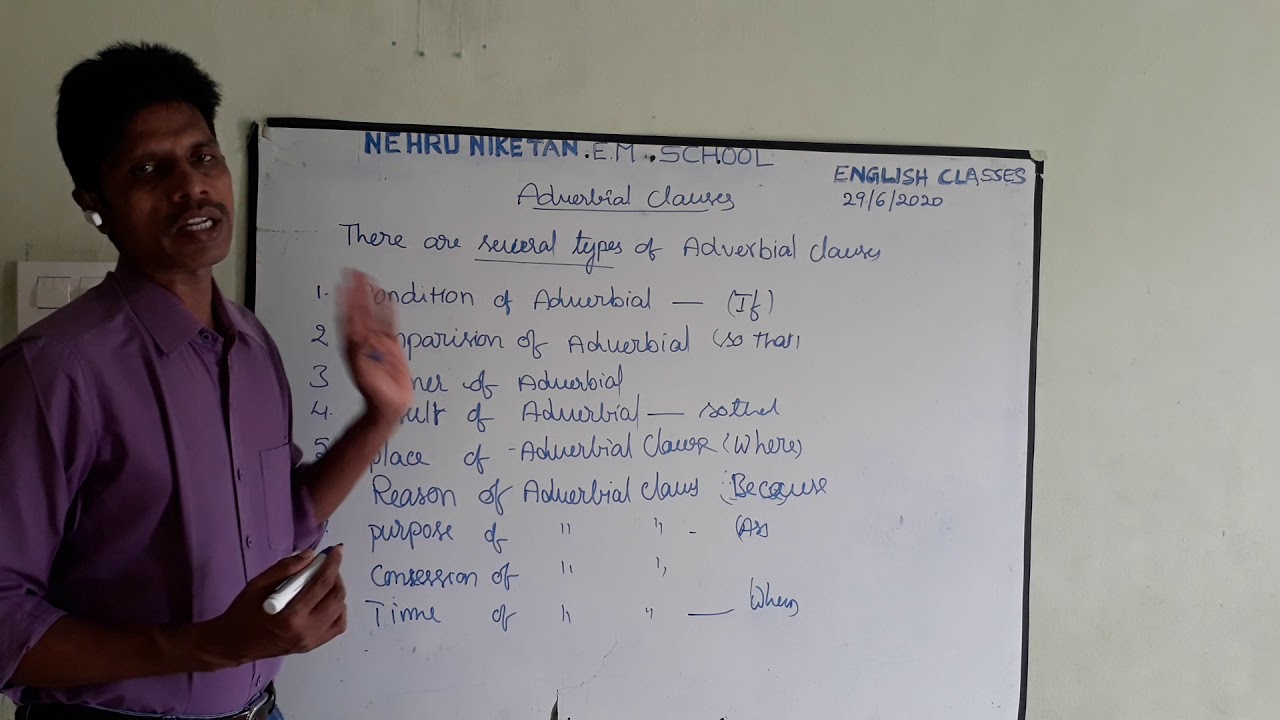 NEHRU NIKETAN.E.M. SCHOOL
ENGLISH CLASSES
29/6/2020
Adverbial Clauses
There are several types of Adverbial clauses
1. Condition of Adverbial — (If)
2 mparision of Adverbial (so that)
3 ner of Adverbial
4. sult of Adverbial — sothat
5 place of Adverbial Clause (Where)
Reason of Adverbial claus (Because
purpose of " " - (As)
Conression of " "
Time of " " — When